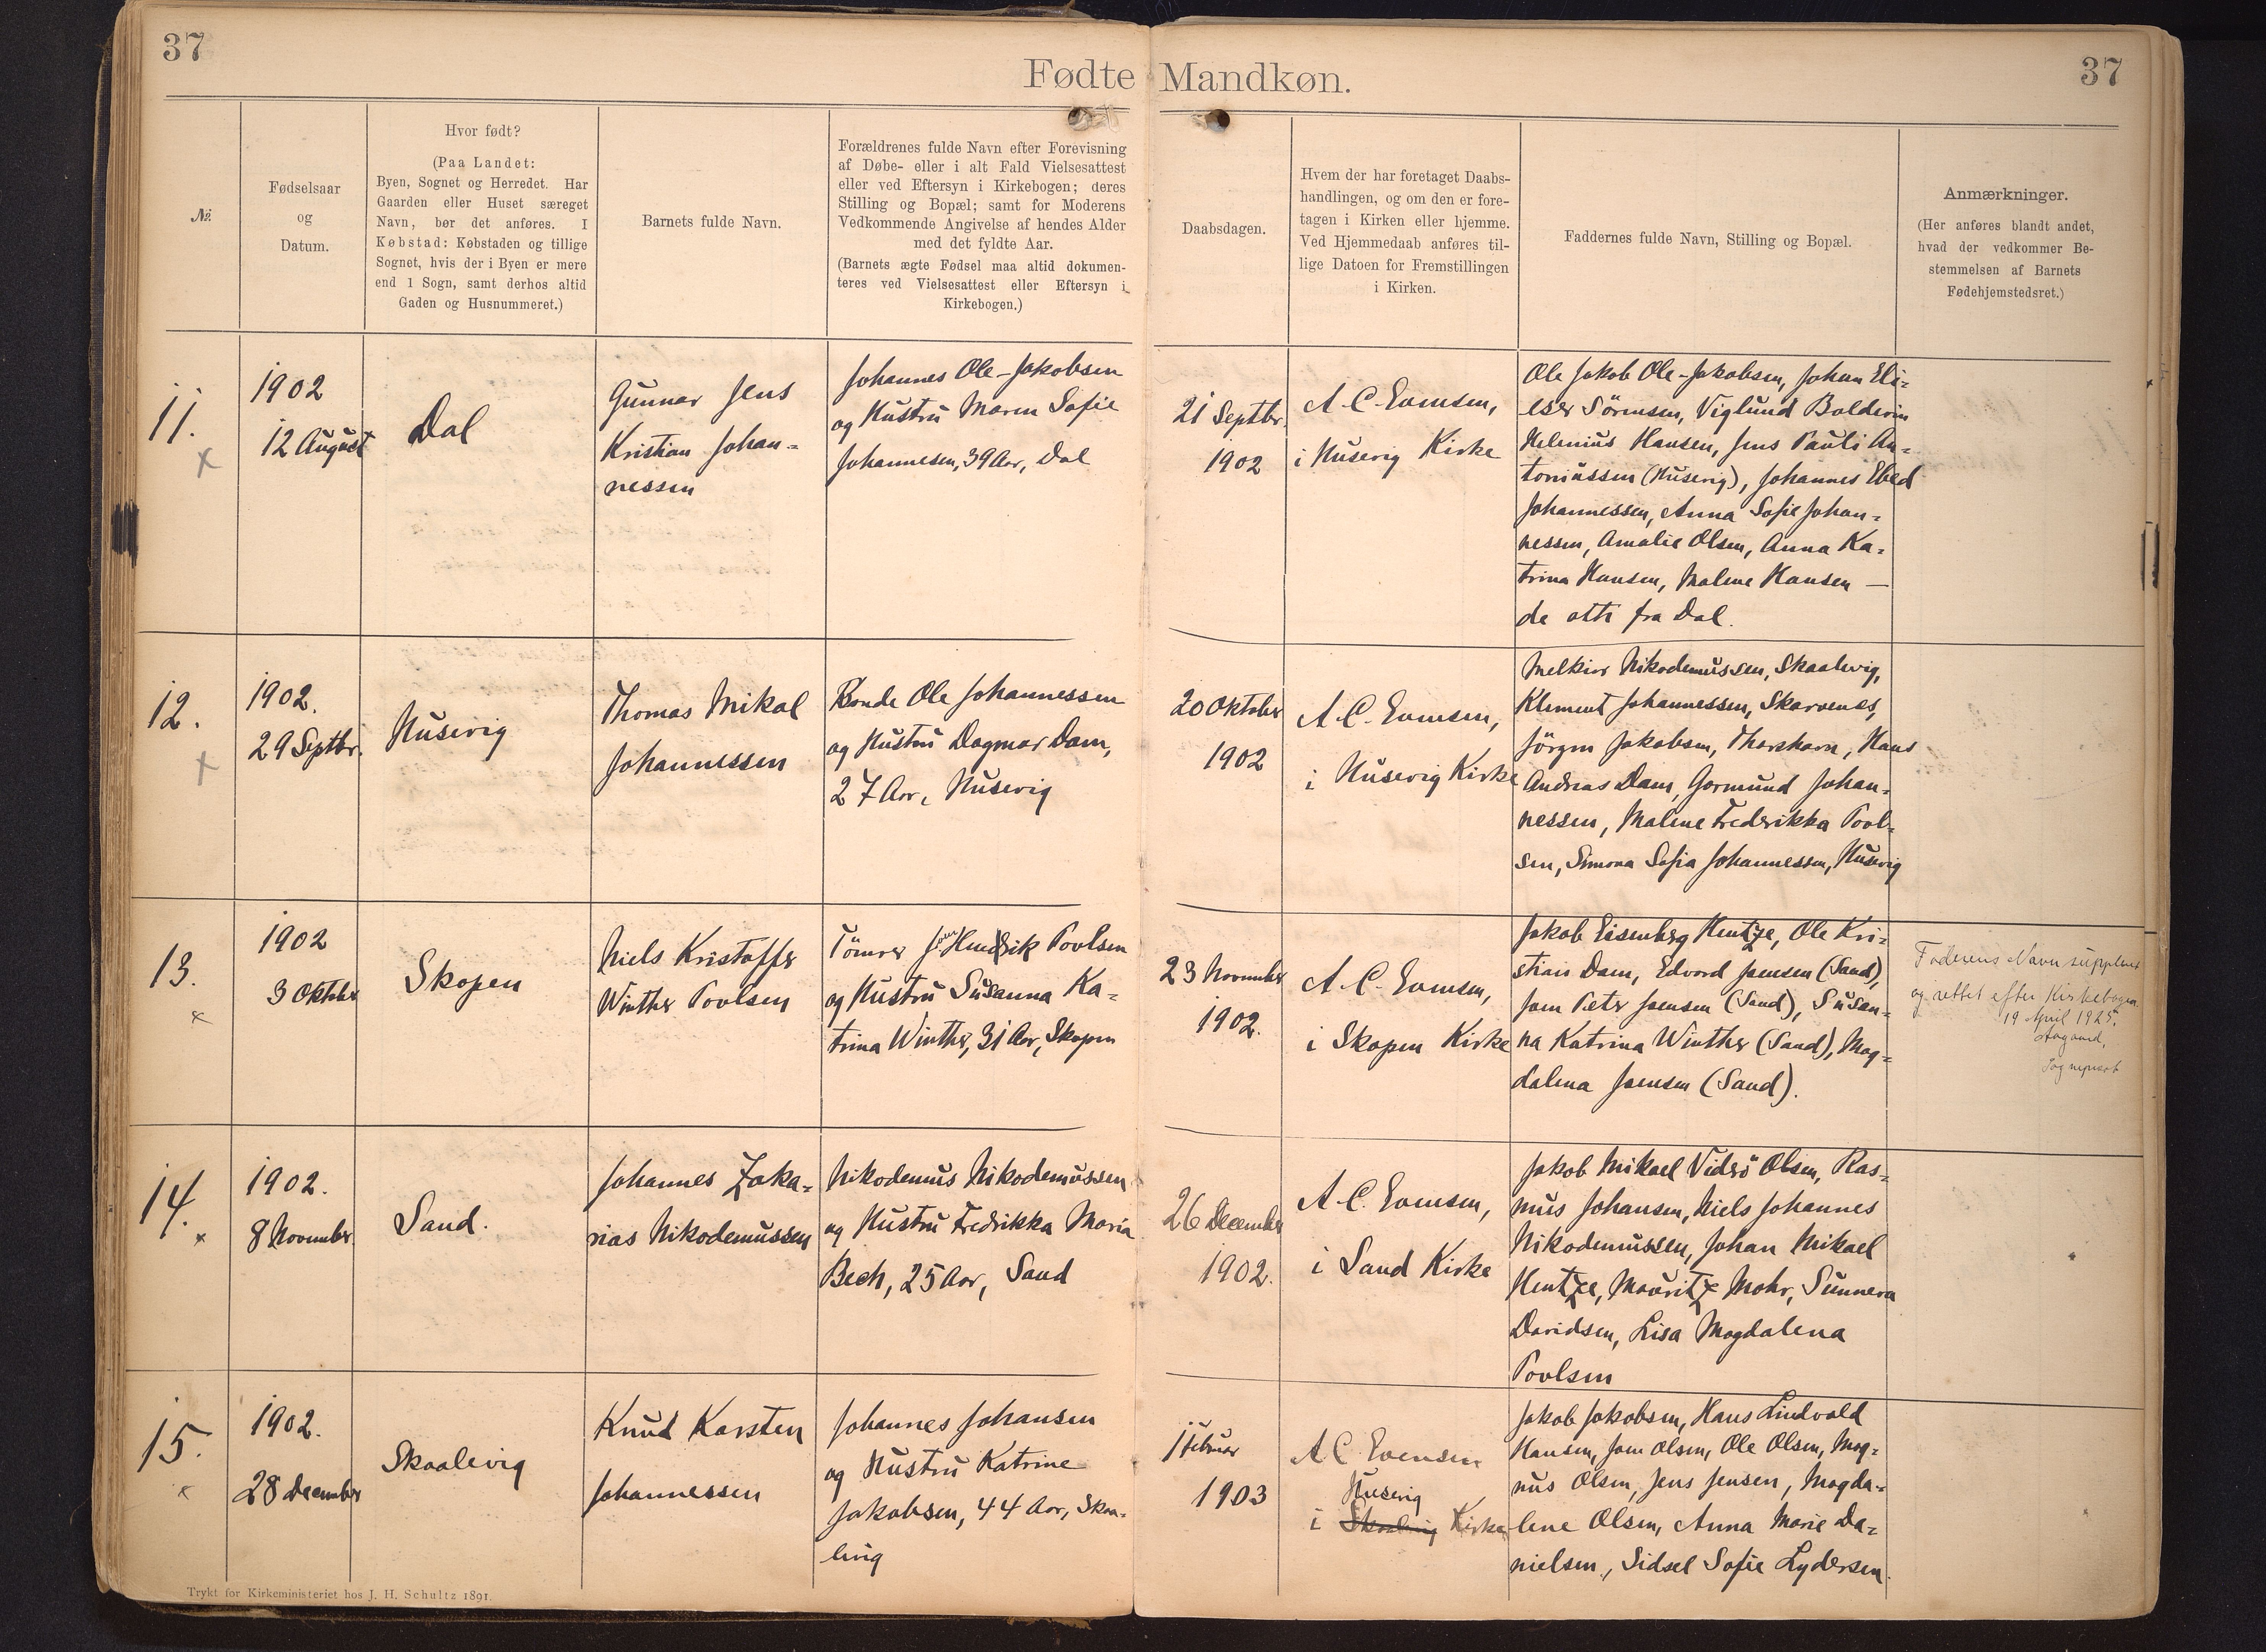 37
Fødte Mandkøn.
37
№
Fødselsaar
og
Datum.
Hvor født?
(Paa Landet:
Byen, Sognet og Herredet. Har
Gaarden eller Huset særeget
Navn, bør det anføres. I
Købstad: Købstaden og tillige
Sognet, hvis der i Byen er mere
end 1 Sogn, samt derhos altid
Gaden og Husnummeret.)
Barnets fulde Navn.
Forældrenes fulde Navn efter Forevisning
af Døbe- eller i alt Fald Vielsesattest
eller ved Eftersyn i Kirkebogen; deres
Stilling og Bopæl; samt for Moderens
Vedkommende Angivelse af hendes Alder
med det fyldte Aar.
(Barnets ægte Fødsel maa altid dokumen-
teres ved Vielsesattest eller Eftersyn i
Kirkebogen.)
Daabsdagen.
Hvem der har foretaget Daabs-
handlingen, og om den er fore-
tagen i Kirken eller hjemme.
Ved Hjemmedaab anføres til-
lige Datoen for Fremstillingen
i Kirken.
Faddernes fulde Navn, Stilling og Bopæl.
Anmærkninger.
(Her anføres blandt andet,
hvad der vedkommer Be-
stemmelsen af Barnets
Fødehjemstedsret.)
11.
x
1902
12 August
Dal
Gunnar Jens
Kristian Johan-
nessen
Johannes Ole-Jakobsen
og Hustru Maren Sofie
Johannesen, 39 Aar, Dal
21 Septbr.
1902
A. C. Evensen,
i Husevig Kirke
Ole Jakob Ole-Jakobsen, Johan Eli-
eser Sörensen, Viglund Baldevin
Helenius Hansen, Jens Pauli An-
toniussen (Husevig), Johannes Ebed
Johannessen, Anna Sofie Johan-
nessen, Amalie Olsen, Anna Ka-
trina Hansen, Malene Hansen —
de otte fra Dal.
12.
x
1902.
29 Septbr.
Husevig
Thomas Mikal
Johannessen
Bonde Ole Johannessen
og Hustru Dagmar Dam,
27 Aar, Husevig
20 Oktober
1902
A. C. Evensen,
i Husevig Kirke
Melkior Nikodemussen, Skaalevig,
Klement Johannessen, Skarvenæs,
Jörgen Jakobsen, Thorshavn, Hans
Andreas Dam, Gormund Johan-
nessen, Malene Frederikka Poul-
sen, Simona Sofia Johannessen, Husevig
13.
x
1902
3 Oktober
Skopen
Niels Kristoffer
Winther Poulsen
Tömrer Joen Hendrik Poulsen
og Hustru Susanna Ka-
trina Winther, 31 Aar, Skopen
23 November
1902.
A. C. Evensen,
i Skopen Kirke
Jakob Eisenberg Hentze, Ole Kri-
stian Dam, Edvard Joensen (Sand),
Joen Peter Joensen (Sand), Susan-
na Katrina Winther (Sand), Mag-
dalena Joensen (Sand).
Faderens Navn suppleret
og rettet efter Kirkebogen
19 April 1925.
Sognepræst
14.
x
1902.
8 November.
Sand.
Johannes Zaka-
rias Nikodemussen
Nikodemus Nikodemussen
og Hustru Fredrikka Maria
Bech, 25 Aar, Sand
26 December
1902.
A. C. Evensen,
i Sand Kirke
Jakob Mikael Viderö Olsen, Ras-
mus Johansen, Niels Johannes
Nikodemussen, Johan Mikael
Hentze, Mouritz Mohr, Sunneva
Davidsen, Lisa Magdalena
Poulsen
15.
x
1902.
28 December
Skaalevig
Knud Karsten
Johannessen
Johannes Johansen
og Hustru Katrine
Jakobsen, 44 Aar, Skaa-
levig
1 Februar
1903
A. C. Evensen
Husevig
i Skaalevig Kirke
Jakob Jakobsen, Hans Lindvald
Hansen, Joen Olsen, Ole Olsen, Mag-
nus Olsen, Jens Jensen, Magda-
lene Olsen, Anna Marie Da-
nielsen, Sidsel Sofie Lydersen.
Trykt for Kirkeministeriet hos J. H. Schultz 1891.